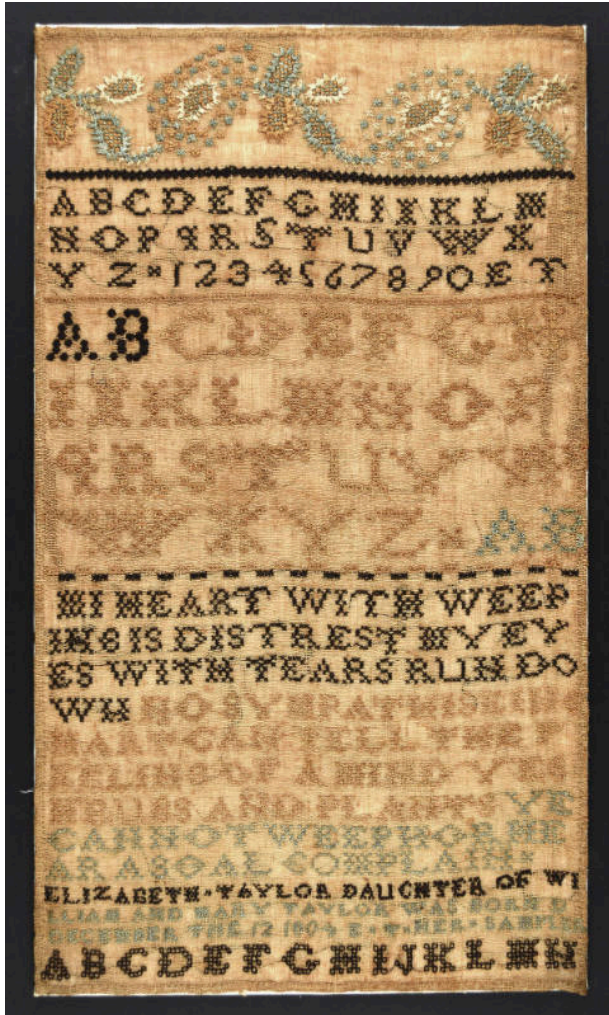 A B C D E F G H I I K L M
N O P Q R S T U V W X
Y Z * 1 2 3 4 5 6 7 8 9 0 E T
A B C D E F G H
I I K L M N O P
Q R S T U V
W X Y Z * A B
MI HEART WITH WEEP
ING IS DISTREST MY EY
ES WITH TEARS RUN DO
WN NO SYMPATHISING
HART CAN TELL THE F
EELING OF A MIND YE S
HRUBS AND PLANTS YE
CANNOT WEEP NOR HE
AR A SOAL COMPLAIN
ELIZABETH * TAYLOR DAUGHTER OF WI
LLIAM AND MARY TAYLOR WAS BORN
DECEMBER THE 12 1804 E * T * HER * SAMPLER
A B C D E F G H I J K L M N